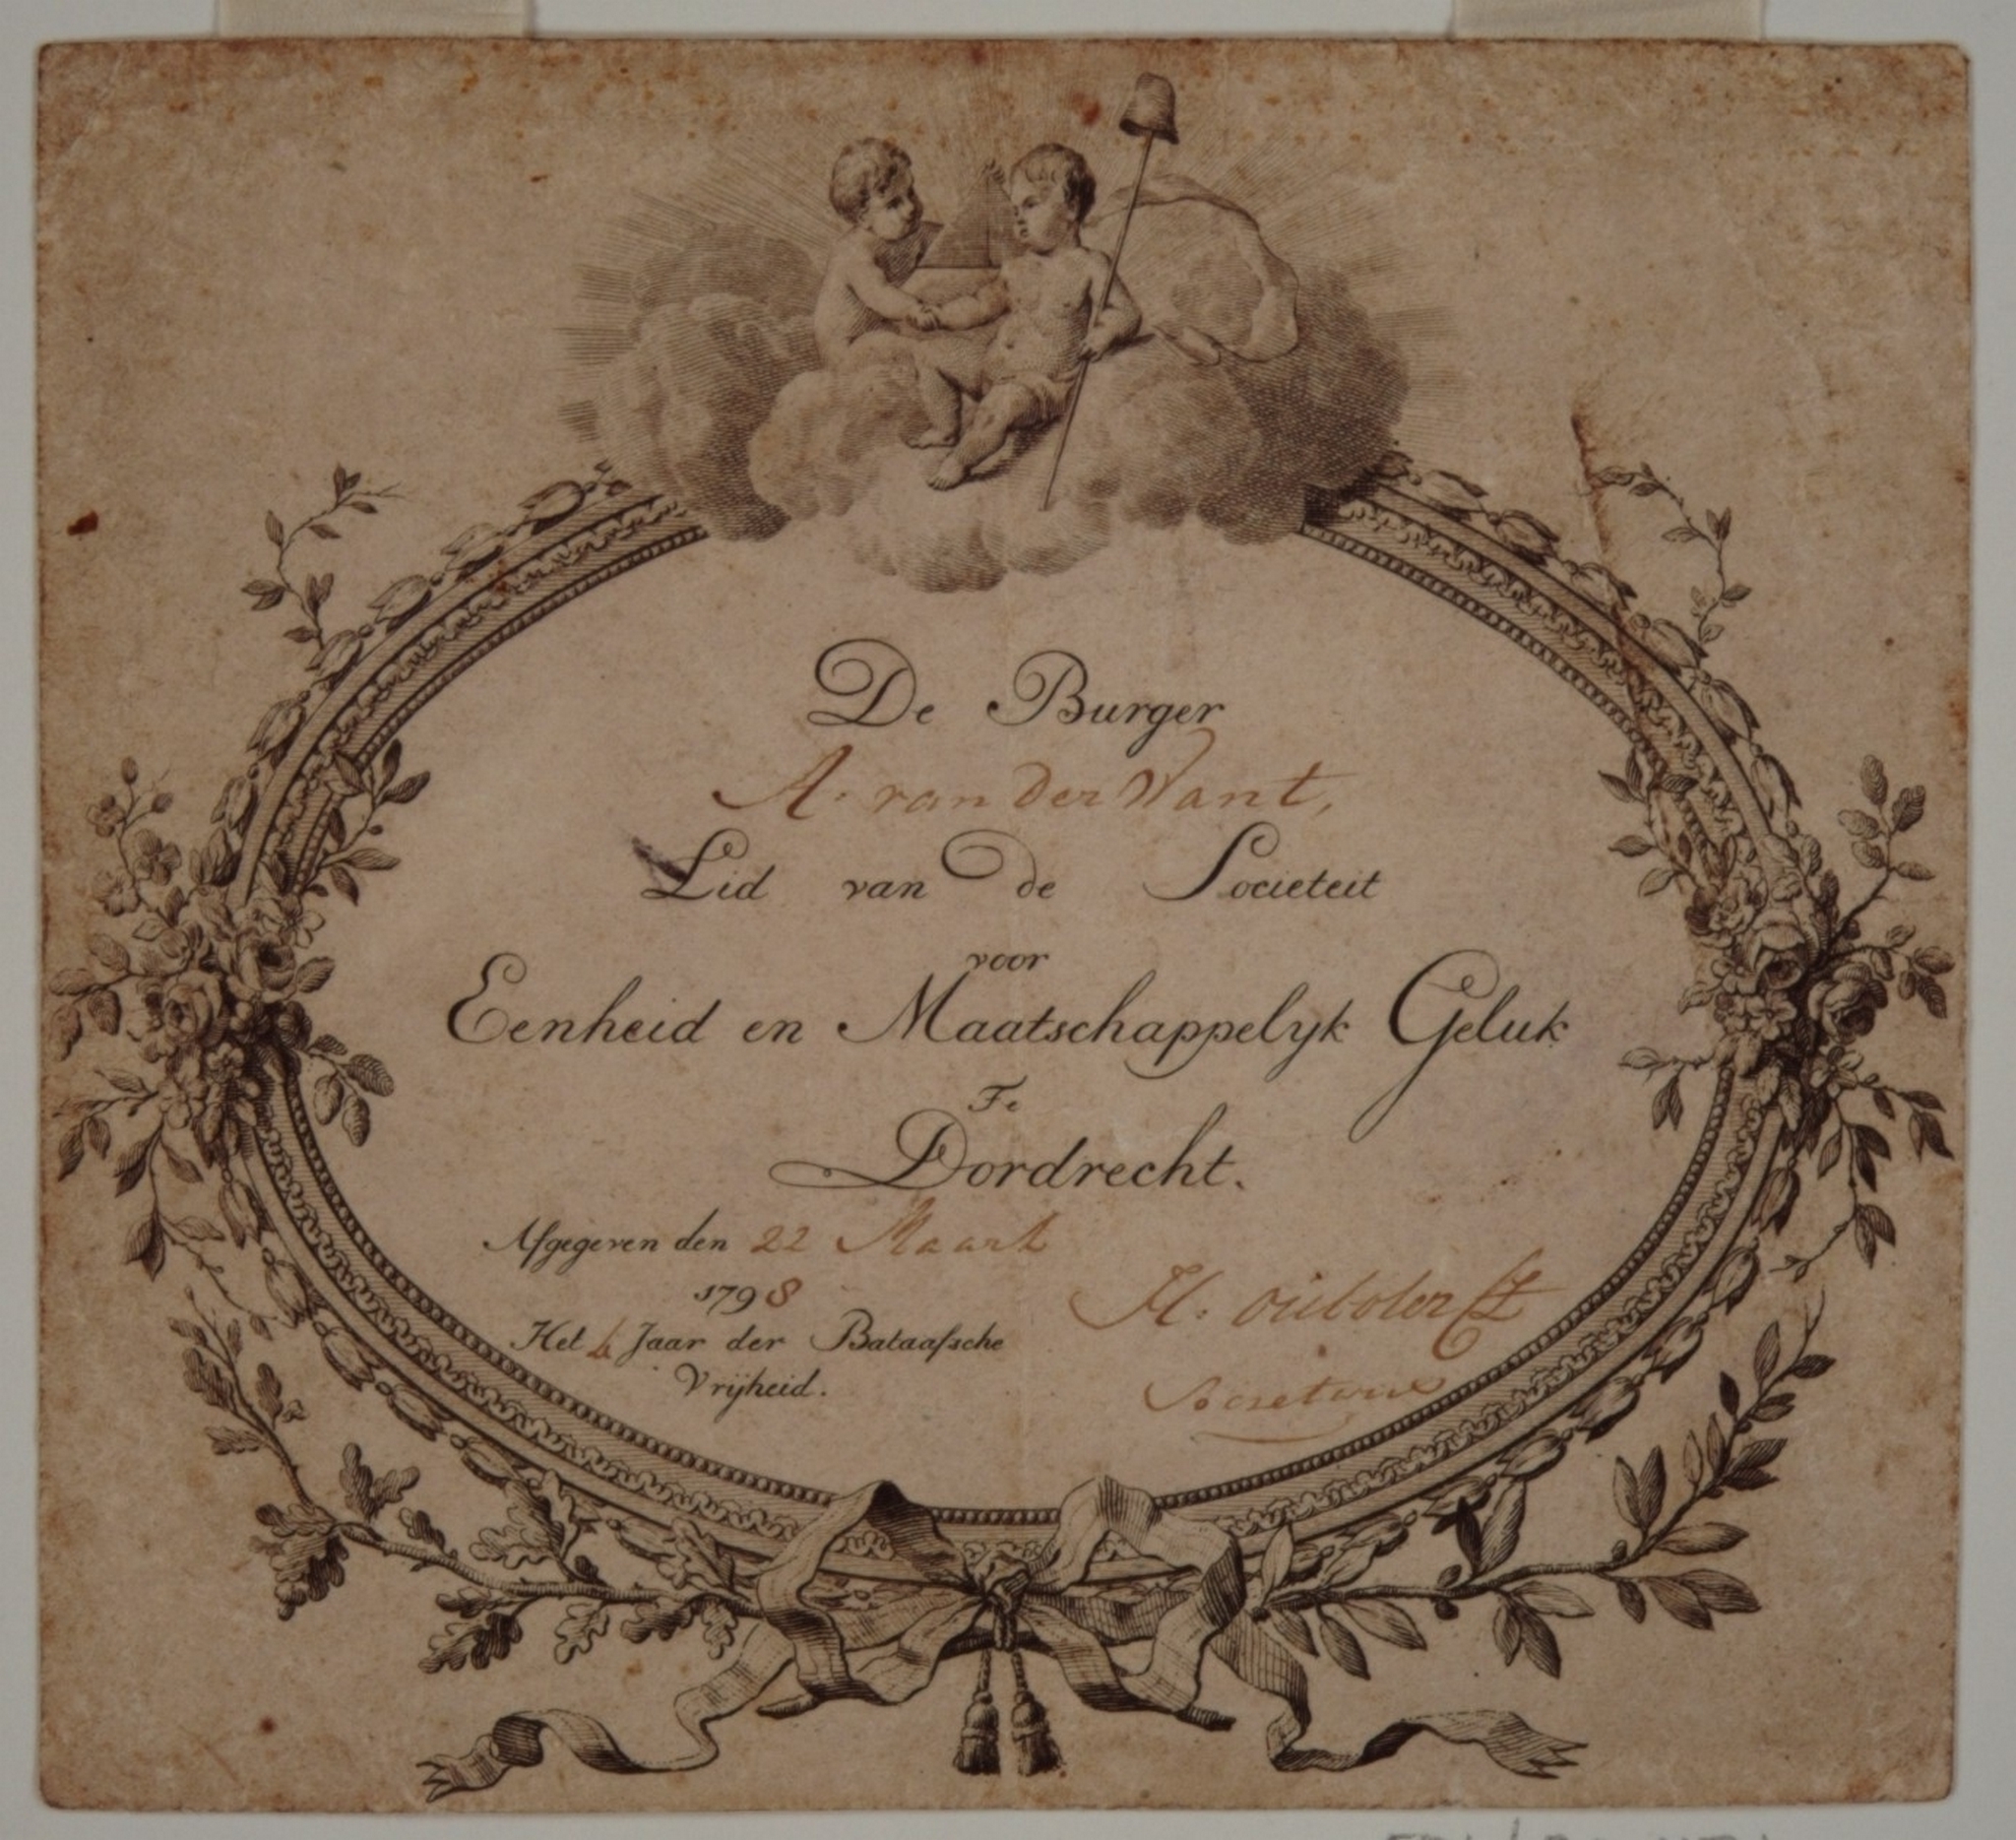 De Burger
A. van der Want,
Lid van de Societeit
voor
Eenheid en Maatschappelyk Geluk
Te
Dordrecht.
Afgegeven den 22 Maart
1798
Het 4 Jaar der Bataafsche
Vrijheid.
H.
Secretaris